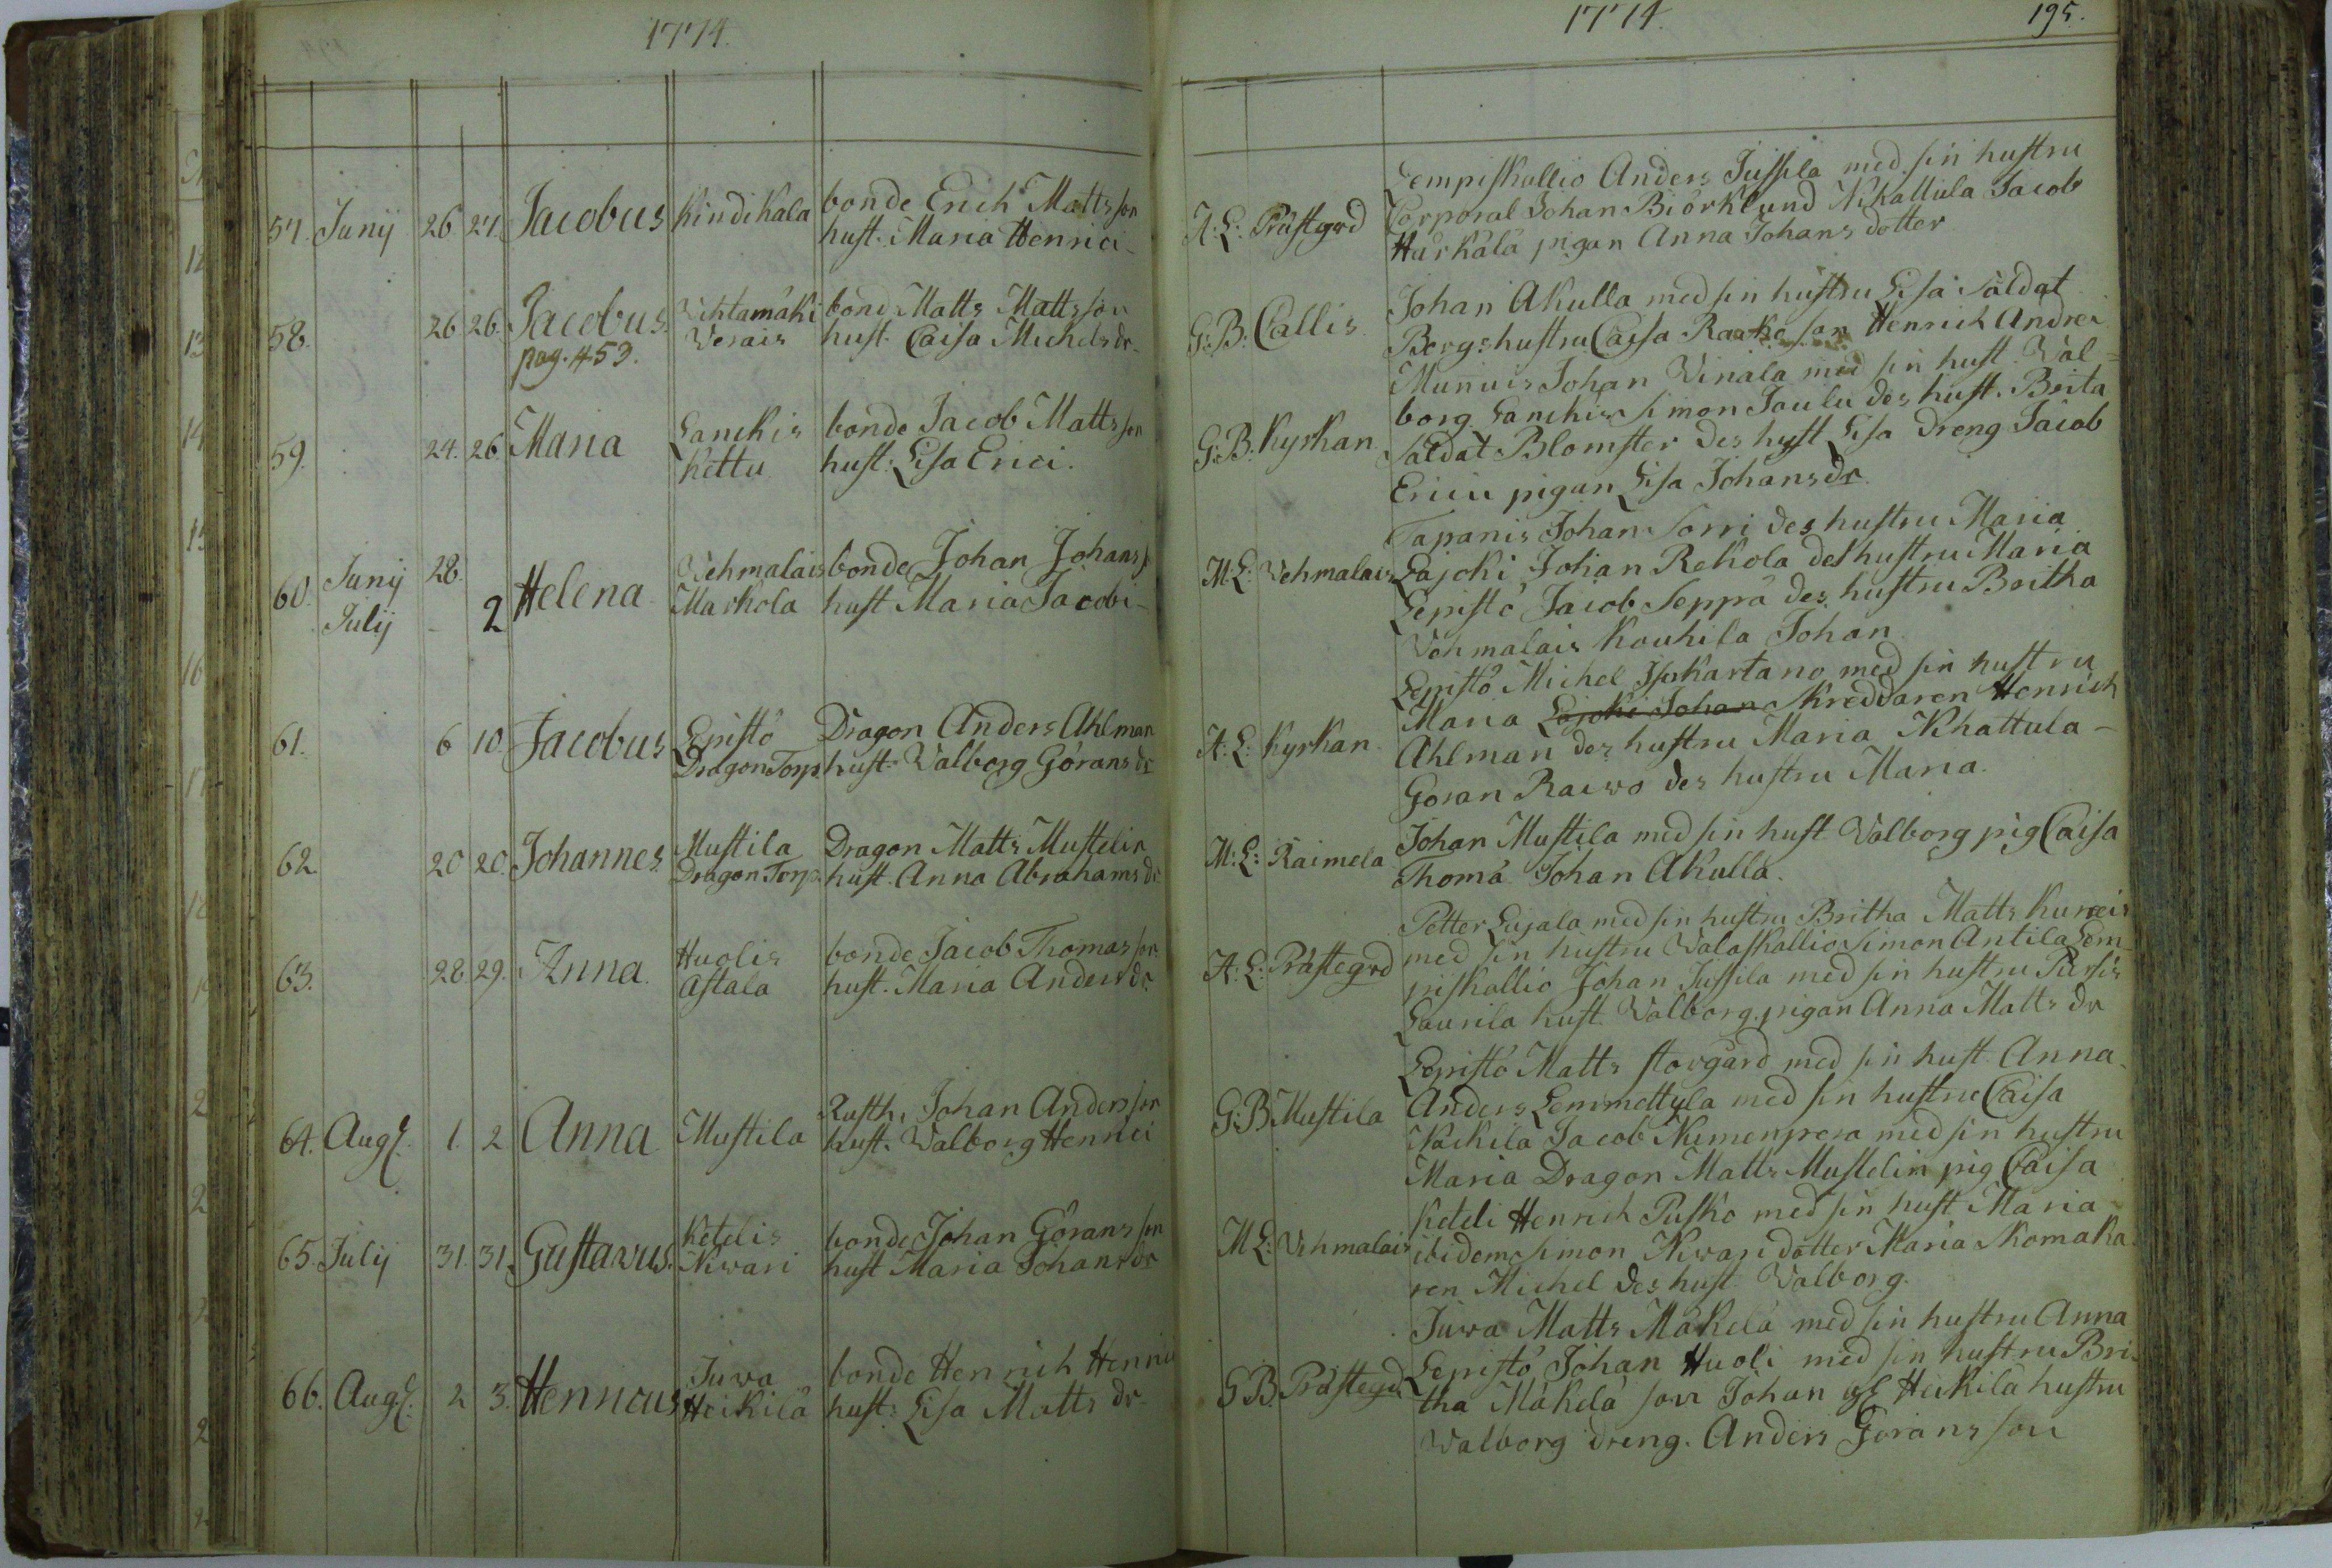 1774.
57. Junij 26 27. Jacobus Kindikala bonde Erich Mattsson
hust. Maria Henrici
58. 26 26. Jacobus. bond Matts Mattsson
pag. 453. Verais hust. Caisa Michelsdr.
59. 24. 26. Maria Lanckis bonde Jacob Mattsson
Kettu hust: Lisa Erici.
60. Junij 28. Helena Vehmalais bonde Johan Johanss
Julij - 2 Markola hust Maria Jacobi
61. 6 10. Jacobus Lepistö Dragon Anders Ahlman
Dragon Torp. hust. Valborg Göransdr
62. 20 20. Johannes. Mustila Dragon Matts Mustelin
Dragon Torp. hust. Anna Abrahamsdr
63. 28 29. Anna. Huolis bonde Jacob Thomasson
Astala hust. Maria Andersdr.
64. Aug. 1. 2 Anna Mustila Rusth. Johan Andersson
hust. Valborg Henrici
65. Julij 31. 31. Gustavus. Ketelis bonde Johan Göransson
Nivari hust Maria Johansdr
66. Aug. 2 3. Henricus Juva bonde Henrich Henrici
Heikilä hust: Lisa Matts dr
1774. 195.
Lempiskallio Anders Jussila med sin hustru
A: L: Prästgrd Corporal Johan Biörklund Nikattula Jacob
Härkälä pigan Anna Johans dotter
Johan Akulla med sin hustru Lisa Saldat
G: B: Callis Bergs hustru Caisa Raukä son Henrich Andrei
Munuis Johan Vinala med sin hust. Val=
borg Lanckis Simon Joulu des hust. Brita
G: B: Kyrkan Saldat Blomster des hust Lisa dreng Jacob
Erici pigan Lisa Johansdr.
Tapanis Johan Sorri des hustru Maria
M: L: Vehmalais Lajoki Johan Rekola des hustru Maria
Lepistö Jacob Seppä des hustru Britha
Vehmalais Kouhila Johan
Lepistö Michel Isokartano med sin hustru
Maria Lajoki Johan Skreddaren Henrich
A: L: Kyrkan Ahlman des hustru Maria Nikattula
Göran Raivo des hustru Maria.
M: L: Raimela Johan Mustila med sin hust Valborg pig Caisa
Thomä Johan Akulla.
Petter Lujala med sin hustru Britha Matts
A: L: Prästegrd med sin hustru Valaskallio Simon Antila Lem=
piskallio Johan Jussila med sin hustru Pursis
Laurila hust Valborg. pigan Anna Matts dr
Lepistö Matts storgård med sin hust. Anna.
G: B Mustila Anders Lemmettyla med sin hustru Caisa
Naikila Jacob Niemenpera med sin hustru
Maria Dragon Matts Mustelin pig Caisa
Keteli Henrich Pusko med sin hust Maria
M L: Vehmalais ibidem Simon Nivari dotter Maria Skomaka
ren Michel des hust Valborg.
Juva Matts Mäkelä med sin hustru Anna
G B. Prästegrd Lepistö Johan Huoli med sin hustru Bri
tha Mäkelä son Johan Heikilä hustru
Walborg dreng. Anders Göransson